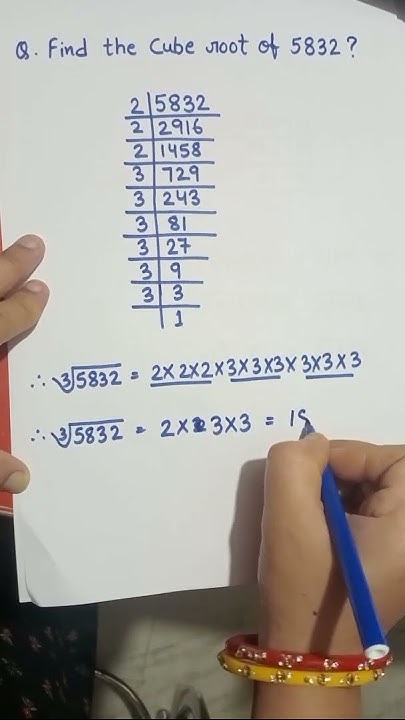 Q. Find the Cube root of 5832?
2 | 5832
2 | 2916
2 | 1458
3 | 729
3 | 243
3 | 81
3 | 27
3 | 9
3 | 3
1
∴ ∛5832 = 2×2×2×3×3×3×3×3×3
∴ ∛5832 = 2×3×3 =